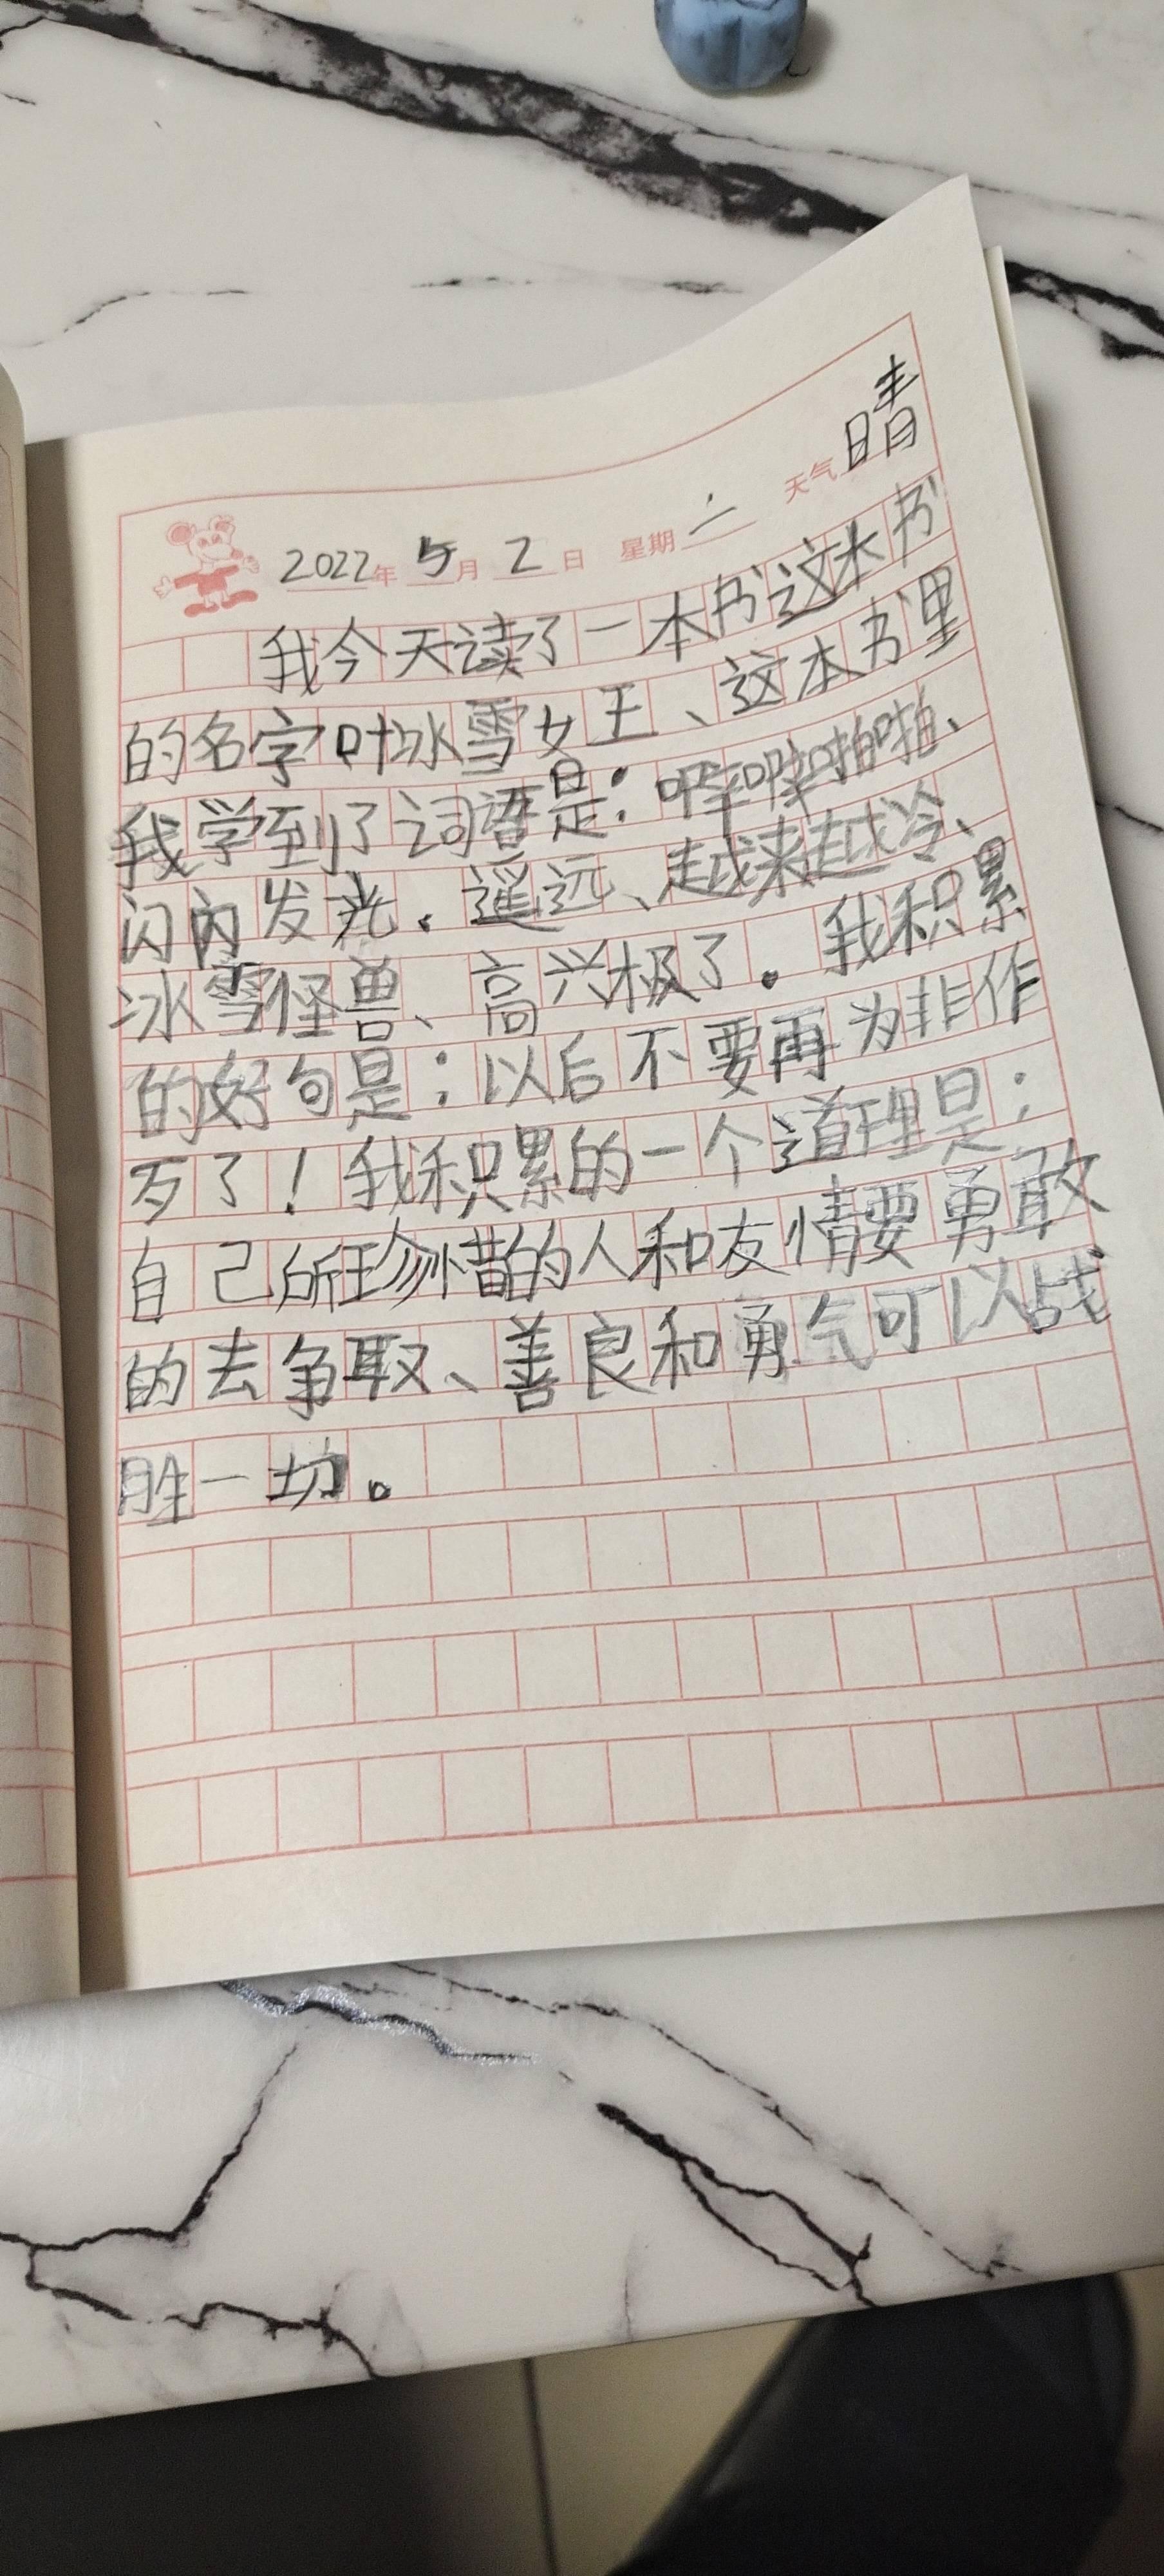 2022年 5月 2日 星期二 天气晴
我今天读了一本书这本书
的名字叶冰雪女王、这本书里
我学到了词语是：噼噼啪啪、
闪闪发光、遥远、越来越冷、
冰雪怪兽、高兴极了。我积累
的好句是：以后不要再为非作
歹了！我积累的一个道理是：
自己所珍惜的人和友情要勇敢
的去争取、善良和勇气可以战
胜一切。